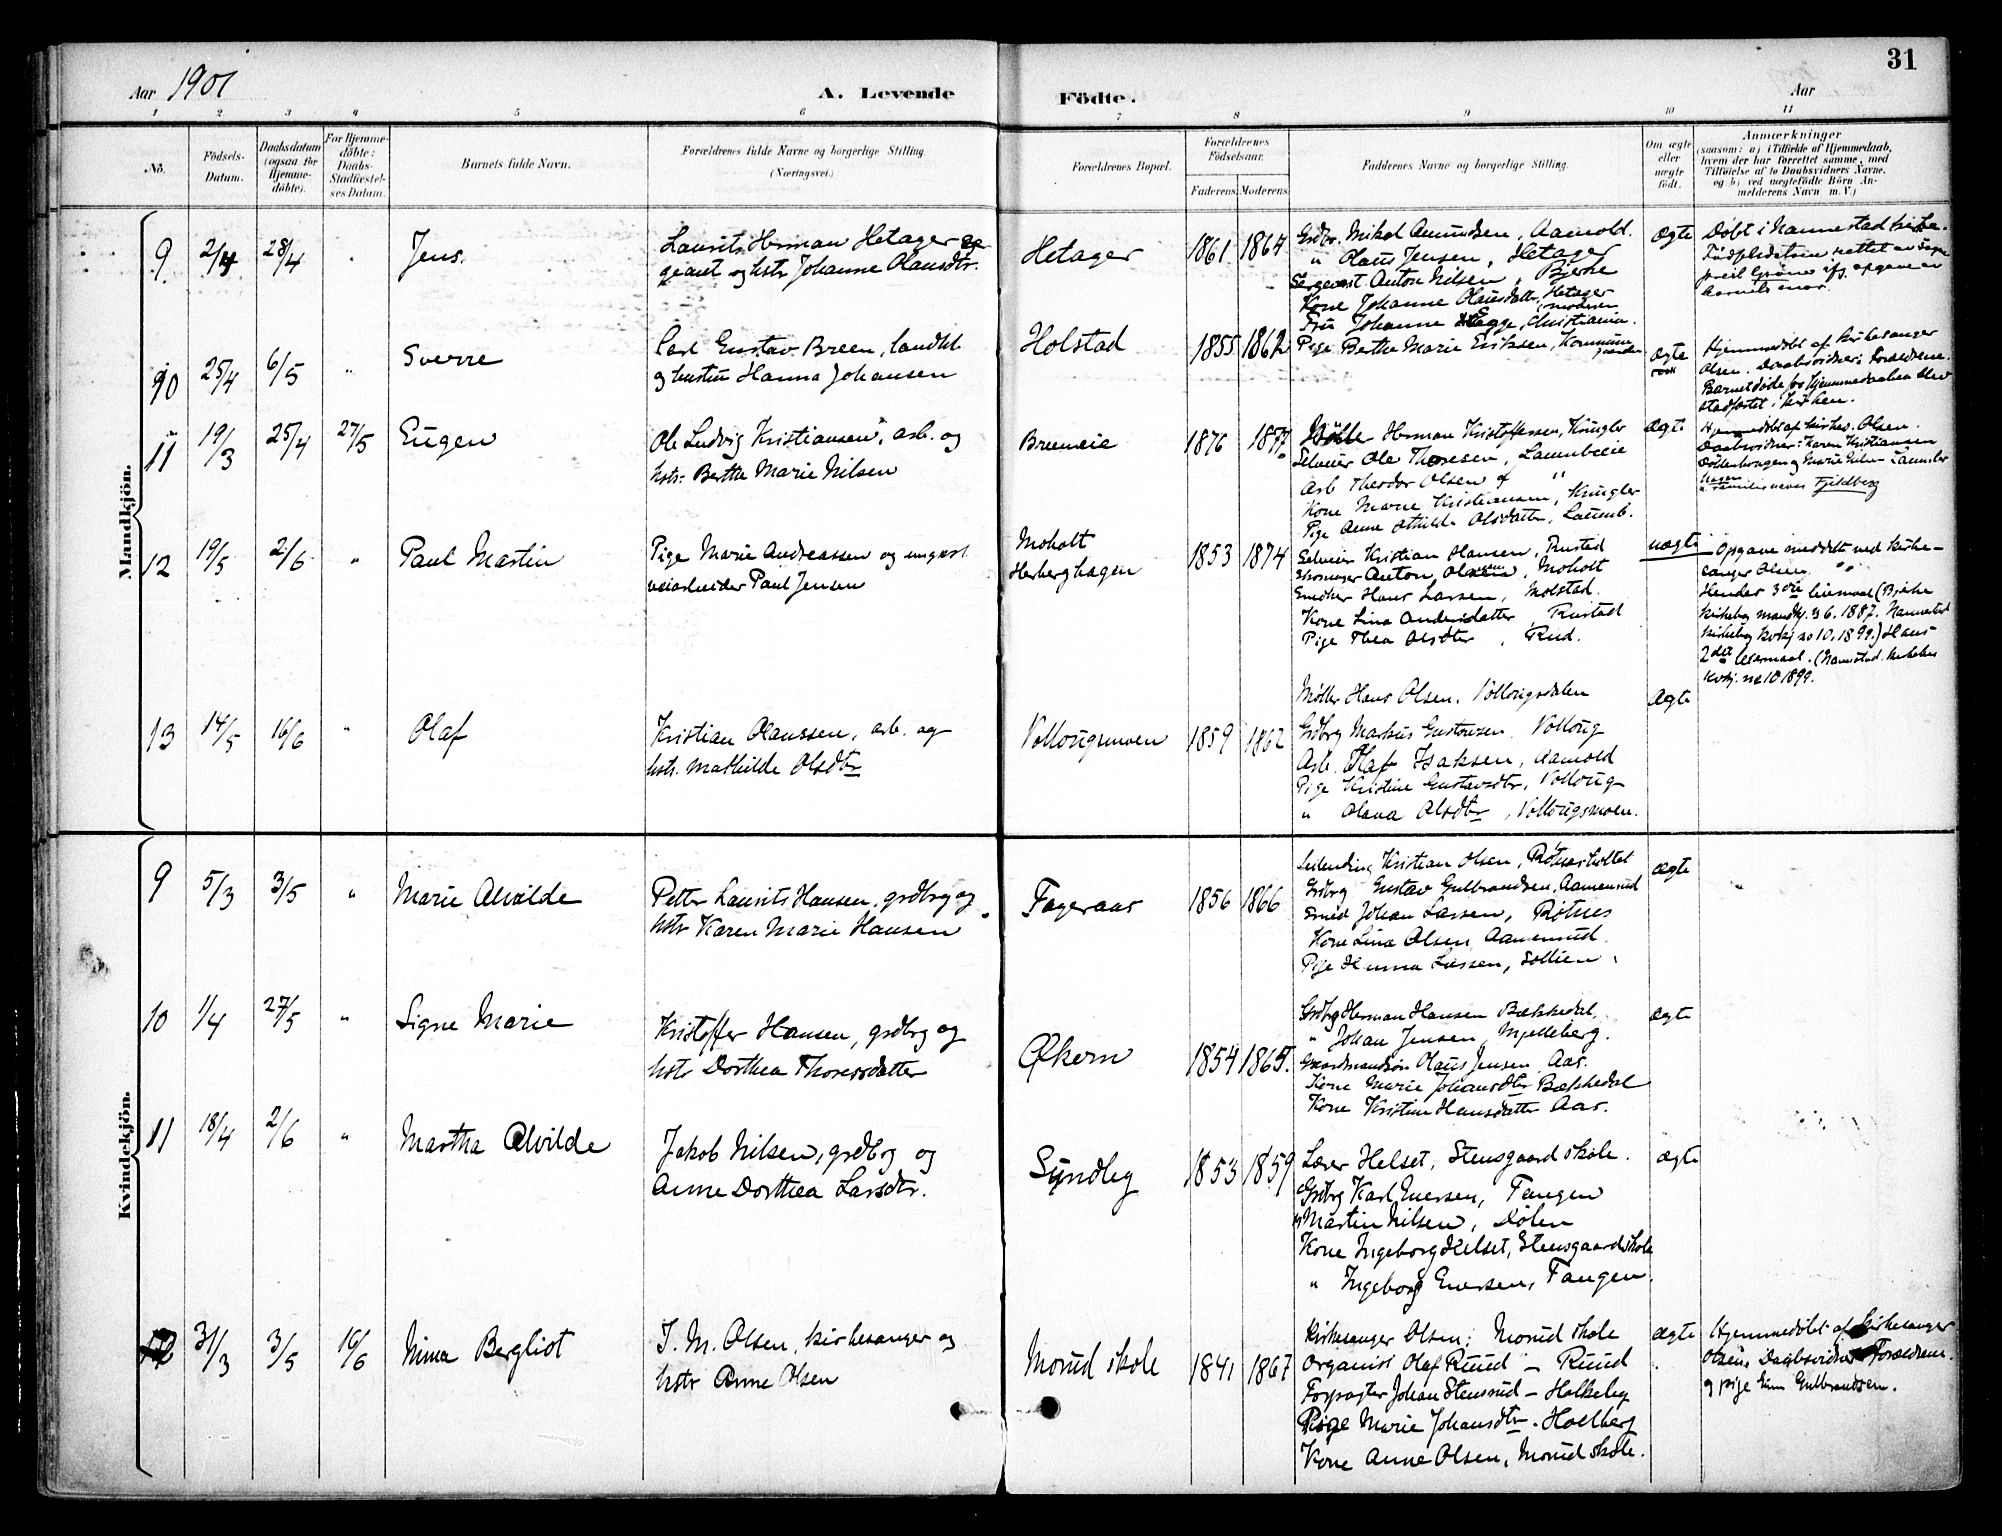 31
Aar 1901
A. Levende Fødte.
Aar
1 2 3 4 5 6 7 8 9 10 11
No.
Fødsels-
Datum.
Daabsdatum
(ogsaa for
Hjemme-
døbte).
For Hjemme-
døbte:
Daabs-
Stadfæstel-
ses Datum.
Barnets fulde Navn.
Forældrenes fulde Navne og borgerlige Stilling.
(Næringsvei.)
Forældrenes Bopæl.
Forældrenes
Fødselsaar.
Faderens. Moderens.
Faddernes Navne og borgerlige Stilling.
Om ægte
eller
uægte
født.
Anmærkninger
(saasom: a) i Tilfælde af Hjemmedaab,
hvem der har forrettet samme, med
Tilføielse af to Daabsvidners Navne,
og b) ved uægtefødte Børn An-
melderens Navn m. V.)
Mandkjøn.
9 2/4 28/4 " Jens.
Laurits Herman Hetager
og hstr Johanne Olausdtr.
Hetager 1861 1864
Grdbr. Mikal Amundsen, Aamold.
" Olaus Jensen, Hetager
Sergeant Anton Nilsen, Bjerke
Kone Johanne Olausdatter, Hetager
Fru Johanne Egge, Christiania.
Pige Berthe Marie Eriksen,
ægte
Døbt i Nannestad kirke.
10 25/4 6/5 " Sverre
Carl Gustav Breen, landh.
og hustru Hanna Johansen
Holstad 1855 1862
ægte
Hjemmedøbt af kirkesanger
Olsen. Daabsvidner: Forældrene.
Barnet døde før hjemmedaaben blev
stadfæstet i kirken.
11 19/3 25/4 27/5 Eugen
Ole Ludvig Kristiansen, arb. og
hstr. Berthe Marie Nilsen
Breeneie 1876 1877
Herman Kristoffersen, Kringler
Selveier Ole Thoresen,
Arb Theodor Olsen
Kone Marie Kristiansen, Kringler
Pige Anne Mthilde Olsdatter, Laumb.
Ægte
Hjemmedøbt af kirkes. Olsen.
Daabsvidner: Karen Kristiansen
Fjeldberg
12 19/5 2/6 " Paul Martin
Pige Marie Andreassen og ungkarl
veiarbeider Paul Jensen
Moholt
Herberghagen 1853 1874
Selveier Kristian Hansen, Rustad
Skomager Anton Olsen, Moholt
Snedker Hans Larsen, Molstad.
Kone Lina Andersdatter, Rustad
Pige Thea Olsdtr, Rud.
uægte
Opgave meddelt ved kirke-
sanger Olsen.
Hendes 3die leiermaal (Bjerke
kirkebog mandkj. 36. 1887. Nannestad
kirkebog kvkj no 10. 1899.) Hans
2det leiermaal. (Nannestad kirkebog
kvkj. no 10 1899.
13 14/5 16/6 " Olaf
Kristian Olaussen, arb. og
hstr. Mathilde Olsdtr
Vollaugsmoen 1859 1862
Møller Hans Olsen, Vollaugsdalen
Grdbrg Markus Gustavsen, Vollaug
Arb. Olaf Isaksen, Aamold
Pige Kristine Gustavsdtr, Vollaug
" Olava Olsdtr, Vollaugsmoen.
Ægte
Kvindekjøn.
9 5/3 3/5 " Marie Alvilde
Petter Laurits Hansen, grdbrg og
hstr Karen Marie Hansen
Fageraas 1856 1866
Kristian Olsen, Røtnesholtet
Grdbrg Gustav Gulbrandsen, Aamensrud
Smed Johan Larsen, Røtnes
Kone Lina Olsen, Aamensrud.
Pige Hanna Larsen, Sollien.
ægte
10 1/4 27/5 " Signe Marie
Kristoffer Hansen, grdbrg og
hstr Dorthea Thoresdatter
Økern 1854 1865.
Grdbrg Herman Hansen Bækkedal,
" Johan Jensen, Mjelleberg.
Gaardmandssøn Olaus Jensen, Aas.
Kone Marie Johansdtr Bækkedal
Kone Kristine Hansdatter Aas.
ægte
11 18/4 2/6 " Martha Alvilde
Jakob Nilsen, grdbrg og
Anne Dorthea Larsdtr.
Syndby 1853 1859
Lærer Helset, Stensgaard skole.
Grdbrg Karl Eversen, Tangen
" Martin Nilsen, Dølen
Kone Ingeborg Helset, Stensgaard skole
" Ingeborg Eversen, Tangen.
ægte
12 31/3 3/5 16/6 Mima Bergliot
J. M. Olsen, kirkesanger og
hstr Anne Olsen
Morud skole 1841 1867
Kirkesanger Olsen, Morud skole
Organist Olaf Ruud – Ruud
Forpagter Johan Stensrud – Holkeby
Pige Marie Johansdtr – Holberg
Kone Anne Olsen, Morud skole.
ægte
Hjemmedøbt af kirkesanger
Olsen. Daabsvidner Forældrene.
og pige Gulbrandsen.